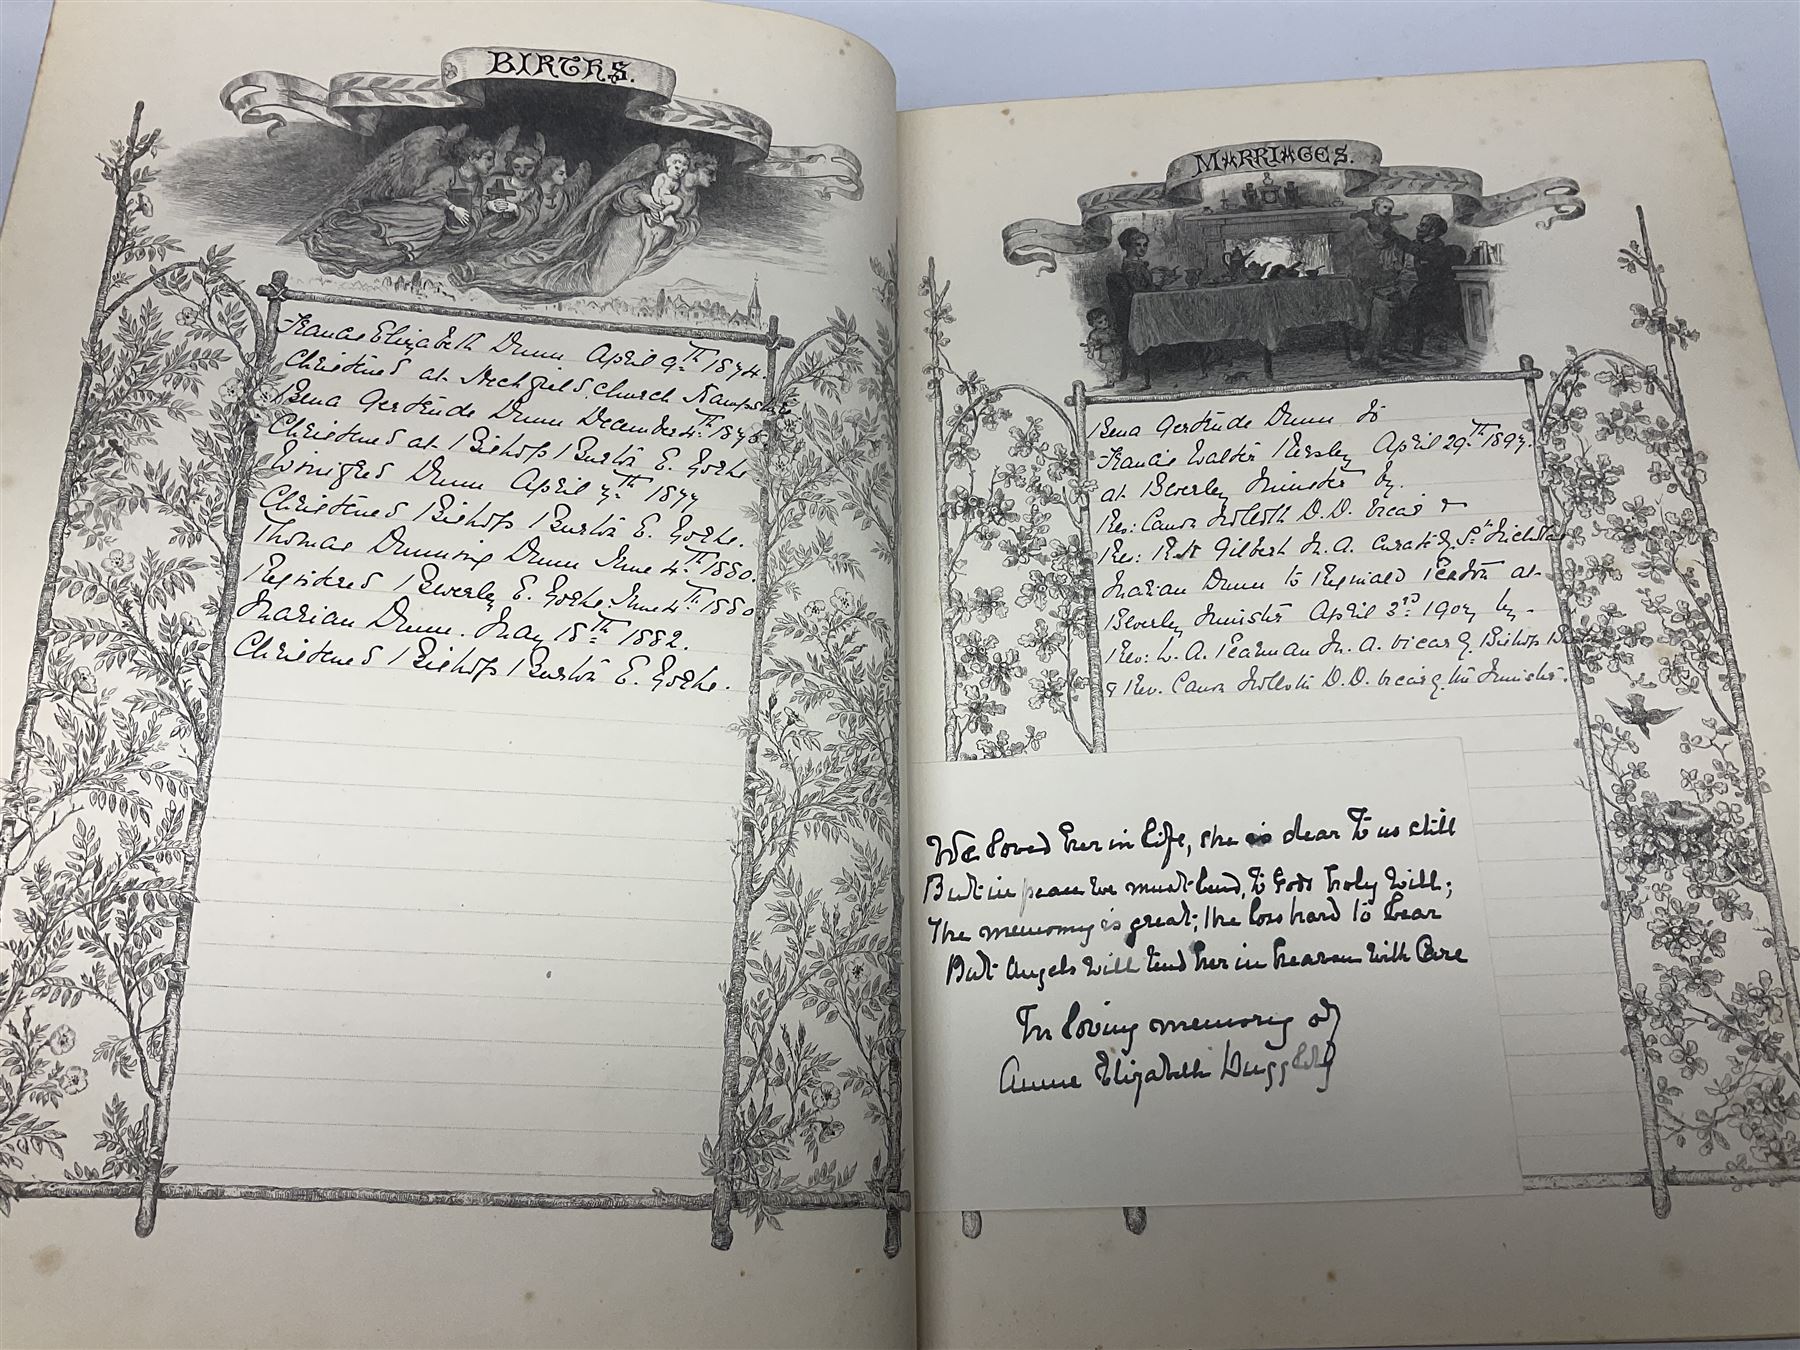 BIRTHS.
Francis Elizabeth Dunn April 9th 1874.
Christened at Church
Bena Gertrude Dunn December 4th
Christened at Bishop Burton E. Yorks
Winifred Dunn April 7th 1877
Christened Bishop Burton E. Yorks.
Thomas Dunning Dunn June 4th 1880.
Registered Beverley E. Yorks. June 4th 1880
Marian Dunn. May 18th 1882.
Christened Bishop Burton E. Yorks.
MARRIAGES.
Bena Gertrude Dunn to
Francis Walter Kersley April 29th 1897.
at Beverley Minster by.
Rev: Canon Nolloth D.D. Vicar &
Rev: Gilbert M.A. Curate of St Nicholas
Marian Dunn to Reginald at
Beverley Minster April 3rd 1907 by
Rev: W. A. Pearman M.A. Vicar of Bishop
& Rev. Canon Nolloth D.D. Vicar of the Minster.
We loved her in life, she is dear to us still
But in peace we must bend, to Gods holy will;
The memory is great; the loss hard to bear
But Angels will tend her in heaven with Care
In loving memory of
Annie Elizabeth Duggleby